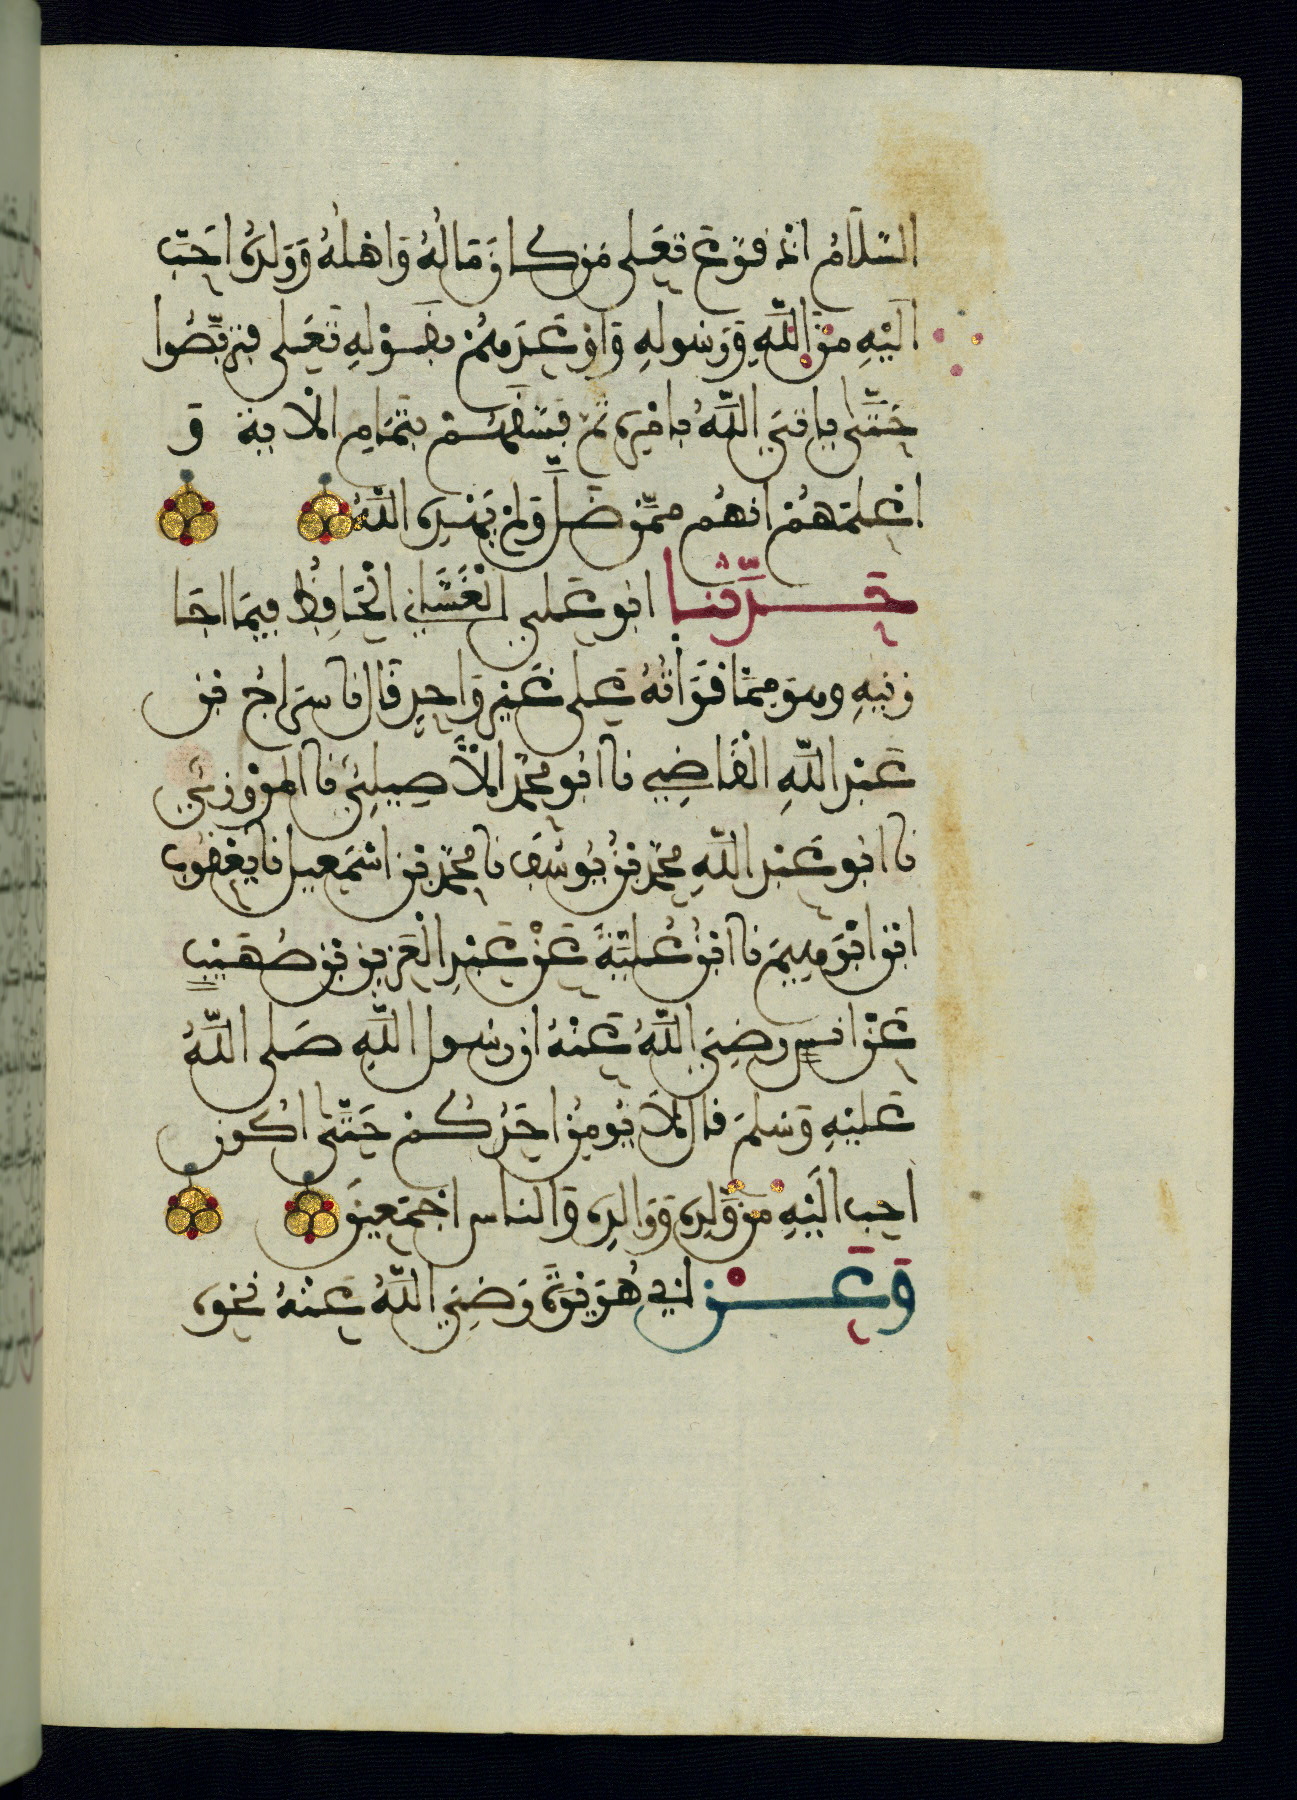 السَّلَامُ اذ فرّع تعلى من كان مَالُهُ وَاهْلُهُ وَوَلَدُهُ احَبّ
الَيْهِ مِنَ اللَّهِ وَرَسُولِهِ وَاوْعَدَهُمْ بقوْلِهِ تَعَلى فتربّصُوا
حَتَّى ياتيَ اللَّهُ بامْرِه ثمّ فَسّقَهُمْ بتَمَامِ الْاية وَ
اعْلمَهُمْ انهُم ممّن ضَلَّ ولمْ يَهْدِه اللَّهُ
حَدَّثنا ابو عَلي الْغَسَّانِي الْحَافِظُ فِيمَا اجَا
زنيهِ وهوَ مِمَّا قرَاتُهُ عَلى غَيْرِ وَاحِدٍ قَال نا سرَاجُ بن
عَبْدِ اللَّهِ الْقَاضِي نا ابو محمدٍ الْأَصِيلِيُّ نا الْمَرْوَزِيُّ
نا ابو عَبْدِ اللَّهِ محمّد بْنُ يُوسُفَ نا محمّد بن اسْمَعِيل نا يَعْقُوب
ابْنُ ابْرَهِيمَ نا ابْنُ عُلَيَّةَ عَنْ عَبْدِ الْعَزيز بْنِ صُهَيْب
عَنْ انسٍ رضِيَ اللَّهُ عَنْهُ ان رسُول اللَّهِ صَلى اللَّهُ
عَليْهِ وَسَلمَ قال لَا يُومِنُ احَدُكُمْ حَتَّى اكُونَ
احب الَيْهِ مِن وَّلدِه وَوَالدِه وَالناس اجْمَعِينَ
وَعَنْ ابي هُرَيْرَةَ رَضِيَ اللَّهُ عَنْهُ نحوه